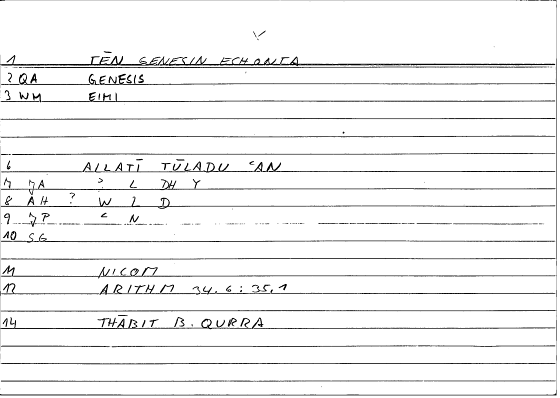 1 TĒN GENESIN ECHONTA
2 QA GENESIS
3 WM EIMI
6 ALLATĪ TŪLADU ʿAN
7 JA ʾ L DH Y
8 AH ? W L D
9 JP ʿ N
10 SG
11 NICOM
12 ARITHM 34.6 : 35,1
14 THĀBIT B. QURRA